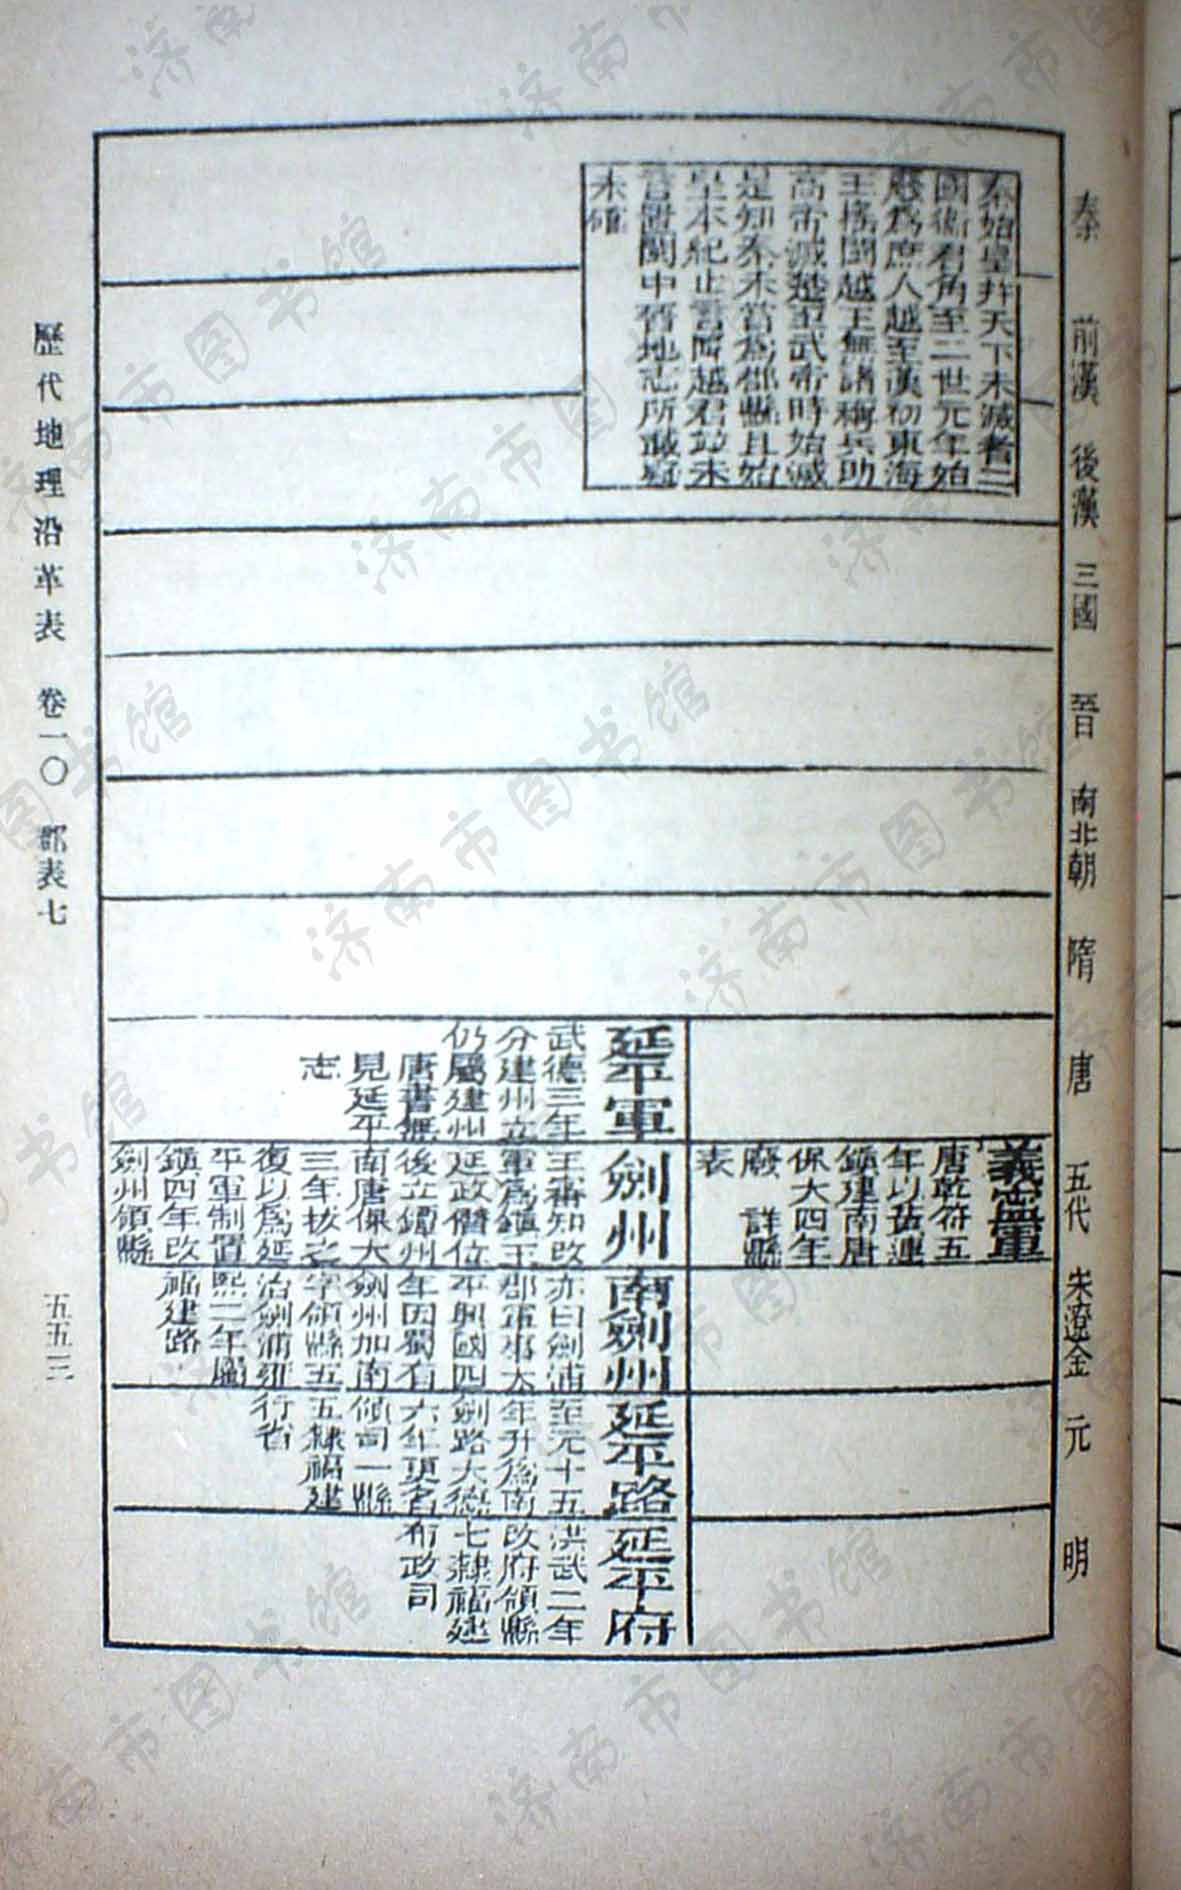 秦
前漢
後漢
三國
晉
南北朝
隋
唐
五代
宋遼金
元
明
秦始皇幷天下未滅者三
國衞君角至二世元年始
廢爲庶人越至漢初東海
王搖閩越王無諸稱兵助
高帝滅楚至武帝時始滅
是知秦未嘗爲郡縣且始
皇本紀止言降越君並未
言置閩中晉地志所載疑
未確
義寧軍
唐乾符五
年以舊連
鎮建南唐
保大四年
廢 詳縣
表
延平軍
武德三年
分建州立
仍屬建州
唐書無
見延平
志
劍州
王審知改
軍爲鎮王
延政僭位
後立鐔州
南唐保大
三年拔之
復以爲延
平軍制置
鎮四年改
劍州領縣
南劍州
亦曰劍浦
郡軍事太
平興國四
年因蜀有
劍州加南
字領縣五
治劍浦紹
熙二年屬
福建路
延平路
至元十五
年升爲南
劍路大德
六年更名
領司一縣
五隸福建
行省
延平府
洪武二年
改府領縣
七隸福建
布政司
歷代地理沿革表 卷一〇 郡表七
五五三
济南市图书馆